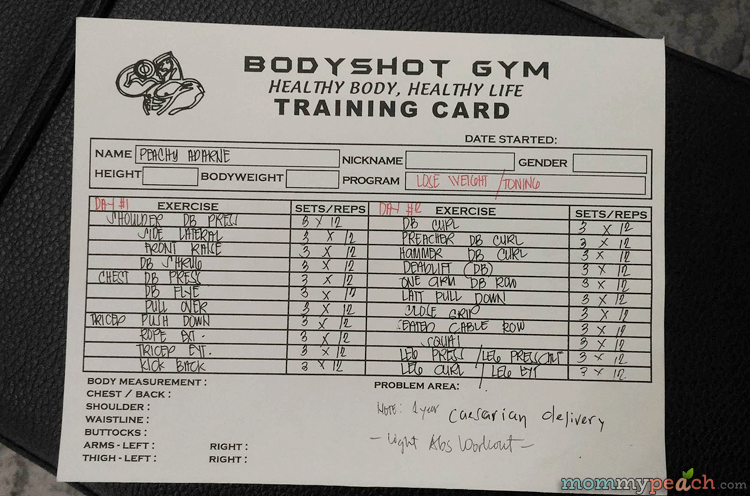 BODYSHOT GYM
HEALTHY BODY, HEALTHY LIFE
TRAINING CARD
DATE STARTED:
NAME PEACHY ADARNE NICKNAME GENDER
HEIGHT BODYWEIGHT PROGRAM LOSE WEIGHT / TONING
DAY #1 EXERCISE SETS/REPS DAY #2 EXERCISE SETS/REPS
SHOULDER DB PRESS 3 X 12 DB CURL 3 X 12
SIDE LATERAL 3 X 12 PREACHER DB CURL 3 X 12
FRONT RAISE 3 X 12 HAMMER DB CURL 3 X 12
DB SHRUG 3 X 12 DEADLIFT (DB) 3 X 12
CHEST DB PRESS 3 X 12 ONE ARM DB ROW 3 X 12
DB FLYE 3 X 12 LATT PULL DOWN 3 X 12
PULL OVER 3 X 12 CLOSE GRIP 3 X 12
TRICEP PUSH DOWN 3 X 12 SEATED CABLE ROW 3 X 12
ROPE EXT. 3 X 12 SQUAT 3 X 12
TRICEP EXT. 3 X 12 LEG PRESS / LEG PRESS 3 X 12
KICK BACK 3 X 12 LEG CURL / LEG EXT 3 X 12
BODY MEASUREMENT : PROBLEM AREA:
CHEST / BACK :
SHOULDER :
WAISTLINE :
BUTTOCKS :
ARMS - LEFT : RIGHT :
THIGH - LEFT : RIGHT :
NOTE: 1 year caesarian delivery
- Light Abs Workout -
mommypeach.com